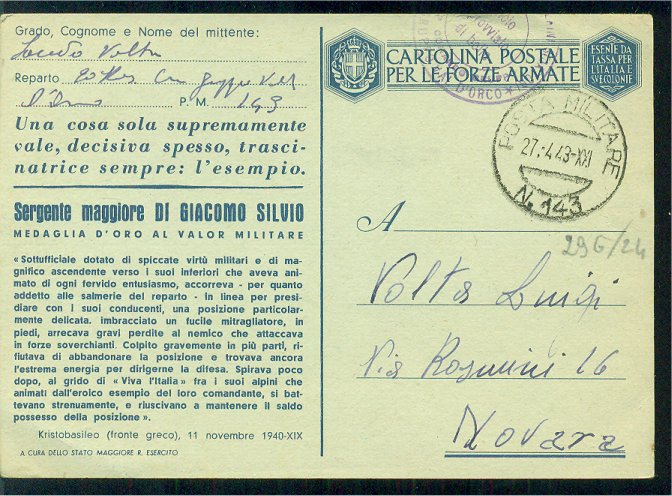 Grado, Cognome e Nome del mittente:
Volta
Reparto
P. M. 143
Una cosa sola supremamente
vale, decisiva spesso, trasci-
natrice sempre: l'esempio.
Sergente maggiore DI GIACOMO SILVIO
MEDAGLIA D'ORO AL VALOR MILITARE
« Sottufficiale dotato di spiccate virtù militari e di ma-
gnifico ascendente verso i suoi inferiori che aveva ani-
mato di ogni fervido entusiasmo, accorreva - per quanto
addetto alle salmerie del reparto - in linea per presi-
diare con i suoi conducenti, una posizione particolar-
mente delicata. imbracciato un fucile mitragliatore, in
piedi, arrecava gravi perdite al nemico che attaccava
in forze soverchianti. Colpito gravemente in più parti, ri-
fiutava di abbandonare la posizione e trovava ancora
l'estrema energia per dirigerne la difesa. Spirava poco
dopo, al grido di « Viva l'Italia » fra i suoi alpini che
animati dall'eroico esempio del loro comandante, si bat-
tevano strenuamente, e riuscivano a mantenere il saldo
possesso della posizione ».
Kristobasileo (fronte greco), 11 novembre 1940-XIX
A CURA DELLO STATO MAGGIORE R. ESERCITO
CARTOLINA POSTALE
PER LE FORZE ARMATE
ESENTE DA
TASSA PER
L'ITALIA E
SVE COLONIE
D'ORCO
POSTA MILITARE
27.4.43-XXI
N. 143
A
29G/24
Volta Luigi
Via Rosmini 16
Novara